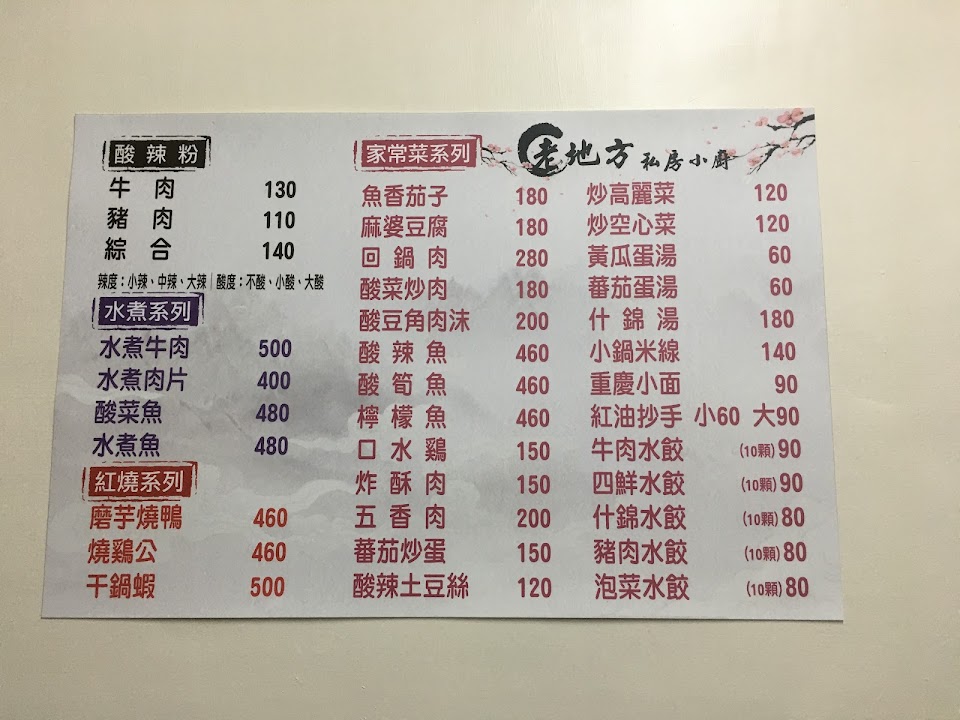 老地方 私房小廚
酸辣粉
牛肉 130
豬肉 110
綜合 140
辣度：小辣、中辣、大辣｜酸度：不酸、小酸、大酸
水煮系列
水煮牛肉 500
水煮肉片 400
酸菜魚 480
水煮魚 480
紅燒系列
磨芋燒鴨 460
燒鷄公 460
干鍋蝦 500
家常菜系列
魚香茄子 180
麻婆豆腐 180
回鍋肉 280
酸菜炒肉 180
酸豆角肉沫 200
酸辣魚 460
酸筍魚 460
檸檬魚 460
口水鷄 150
炸酥肉 150
五香肉 200
蕃茄炒蛋 150
酸辣土豆絲 120
炒高麗菜 120
炒空心菜 120
黃瓜蛋湯 60
蕃茄蛋湯 60
什錦湯 180
小鍋米線 140
重慶小面 90
紅油抄手 小60 大90
牛肉水餃 (10顆) 90
四鮮水餃 (10顆) 90
什錦水餃 (10顆) 80
豬肉水餃 (10顆) 80
泡菜水餃 (10顆) 80